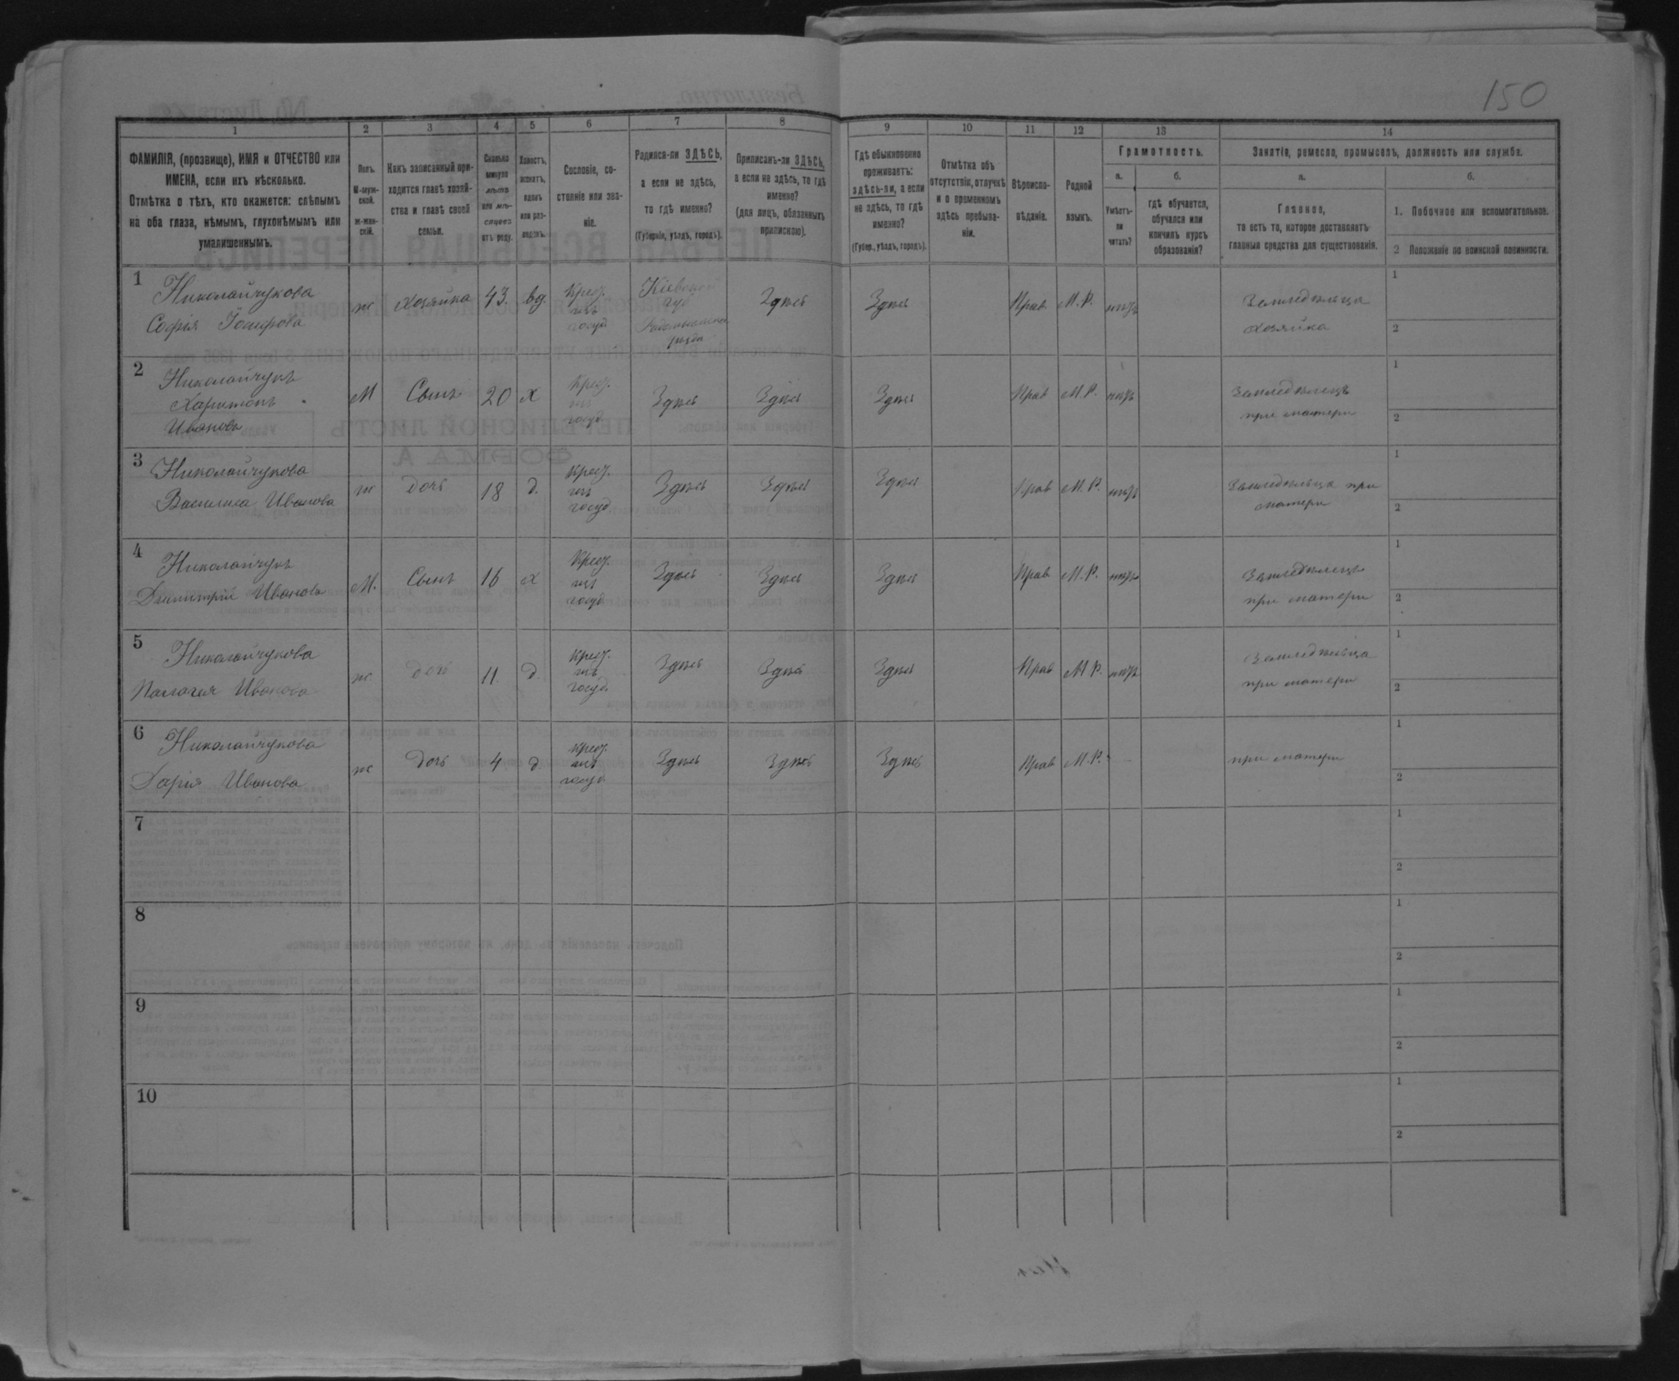 150
1 2 3 4 5 6 7 8 9 10 11 12 13 14
ФАМИЛІЯ, (прозвище), ИМЯ и ОТЧЕСТВО или
ИМЕНА, если ихъ нѣсколько.
Отмѣтка о тѣхъ, кто окажется: слѣпымъ
на оба глаза, нѣмымъ, глухонѣмымъ или
умалишеннымъ.
Полъ.
М-муж-
ской.
ж-жен-
скій.
Какъ записанный при-
ходится главѣ хозяй-
ства и главѣ своей
семьи.
Сколько
минуло
лѣтъ
или мѣ-
сяцевъ
отъ роду.
Холостъ,
женатъ,
вдовъ
или раз-
веденъ.
Сословіе, со-
стояніе или зва-
ніе.
Родился-ли ЗДѢСЬ,
а если не здѣсь,
то гдѣ именно?
(Губернія, уѣздъ, городъ).
Приписанъ-ли ЗДѢСЬ,
а если не здѣсь, то гдѣ
именно?
(для лицъ, обязанныхъ
припискою).
Гдѣ обыкновенно
проживаетъ:
здѣсь-ли, а если
не здѣсь, то гдѣ
именно?
(Губер., уѣздъ, городъ).
Отмѣтка объ
отсутствіи, отлучкѣ
и о временномъ
здѣсь пребыва-
ніи.
Вѣроиспо-
вѣданіе.
Родной
языкъ.
Грамотность.
а.
Умѣетъ-
ли
читать?
б.
гдѣ обучается,
обучался или
кончилъ курсъ
образованія?
Занятіе, ремесло, промыселъ, должность или служба.
а.
Главное,
то есть то, которое доставляетъ
главныя средства для существованія.
б.
1. Побочное или вспомогательное.
2 Положеніе по воинской повинности.
1
Николайчукова
Софія
ж Хозяйка 43. вд.
Крест.
изъ
госуд
Кіевской
губ
Радомысльска
уѣзда
Здѣсь Здѣсь Прав М.Р. нѣтъ
Земледѣльца
хозяйка
1
2
2
Николайчукъ
Харитонъ
Иванов
М Сынъ 20 х
Крест.
изъ
госуд
Здѣсь Здѣсь Здѣсь Прав М.Р. нѣтъ
Земледѣлецъ
при матери
1
2
3
Николайчукова
Василиса Иванова
ж дочь 18 д.
Крест.
изъ
госуд
Здѣсь Здѣсь Здѣсь Прав М.Р. нѣтъ
Земледѣльца при
матери
1
2
4
Николайчукъ
Димитрій Иванов
М. Сынъ 16 х
Крест.
изъ
госуд
Здѣсь Здѣсь Здѣсь Прав М.Р. нѣтъ
Земледѣлецъ
при матери
1
2
5
Николайчукова
Палагея Иванова
ж дочь 11 д
Крест.
изъ
госуд
Здѣсь Здѣсь Здѣсь Прав М.Р. нѣтъ
Земледѣльца
при матери
1
2
6
Николайчукова
Дарія Иванова
ж дочь 4 д
крест.
изъ
госуд
Здѣсь Здѣсь Здѣсь Прав М.Р.
при матери
1
2
7
1
2
8
1
2
9
1
2
10
1
2